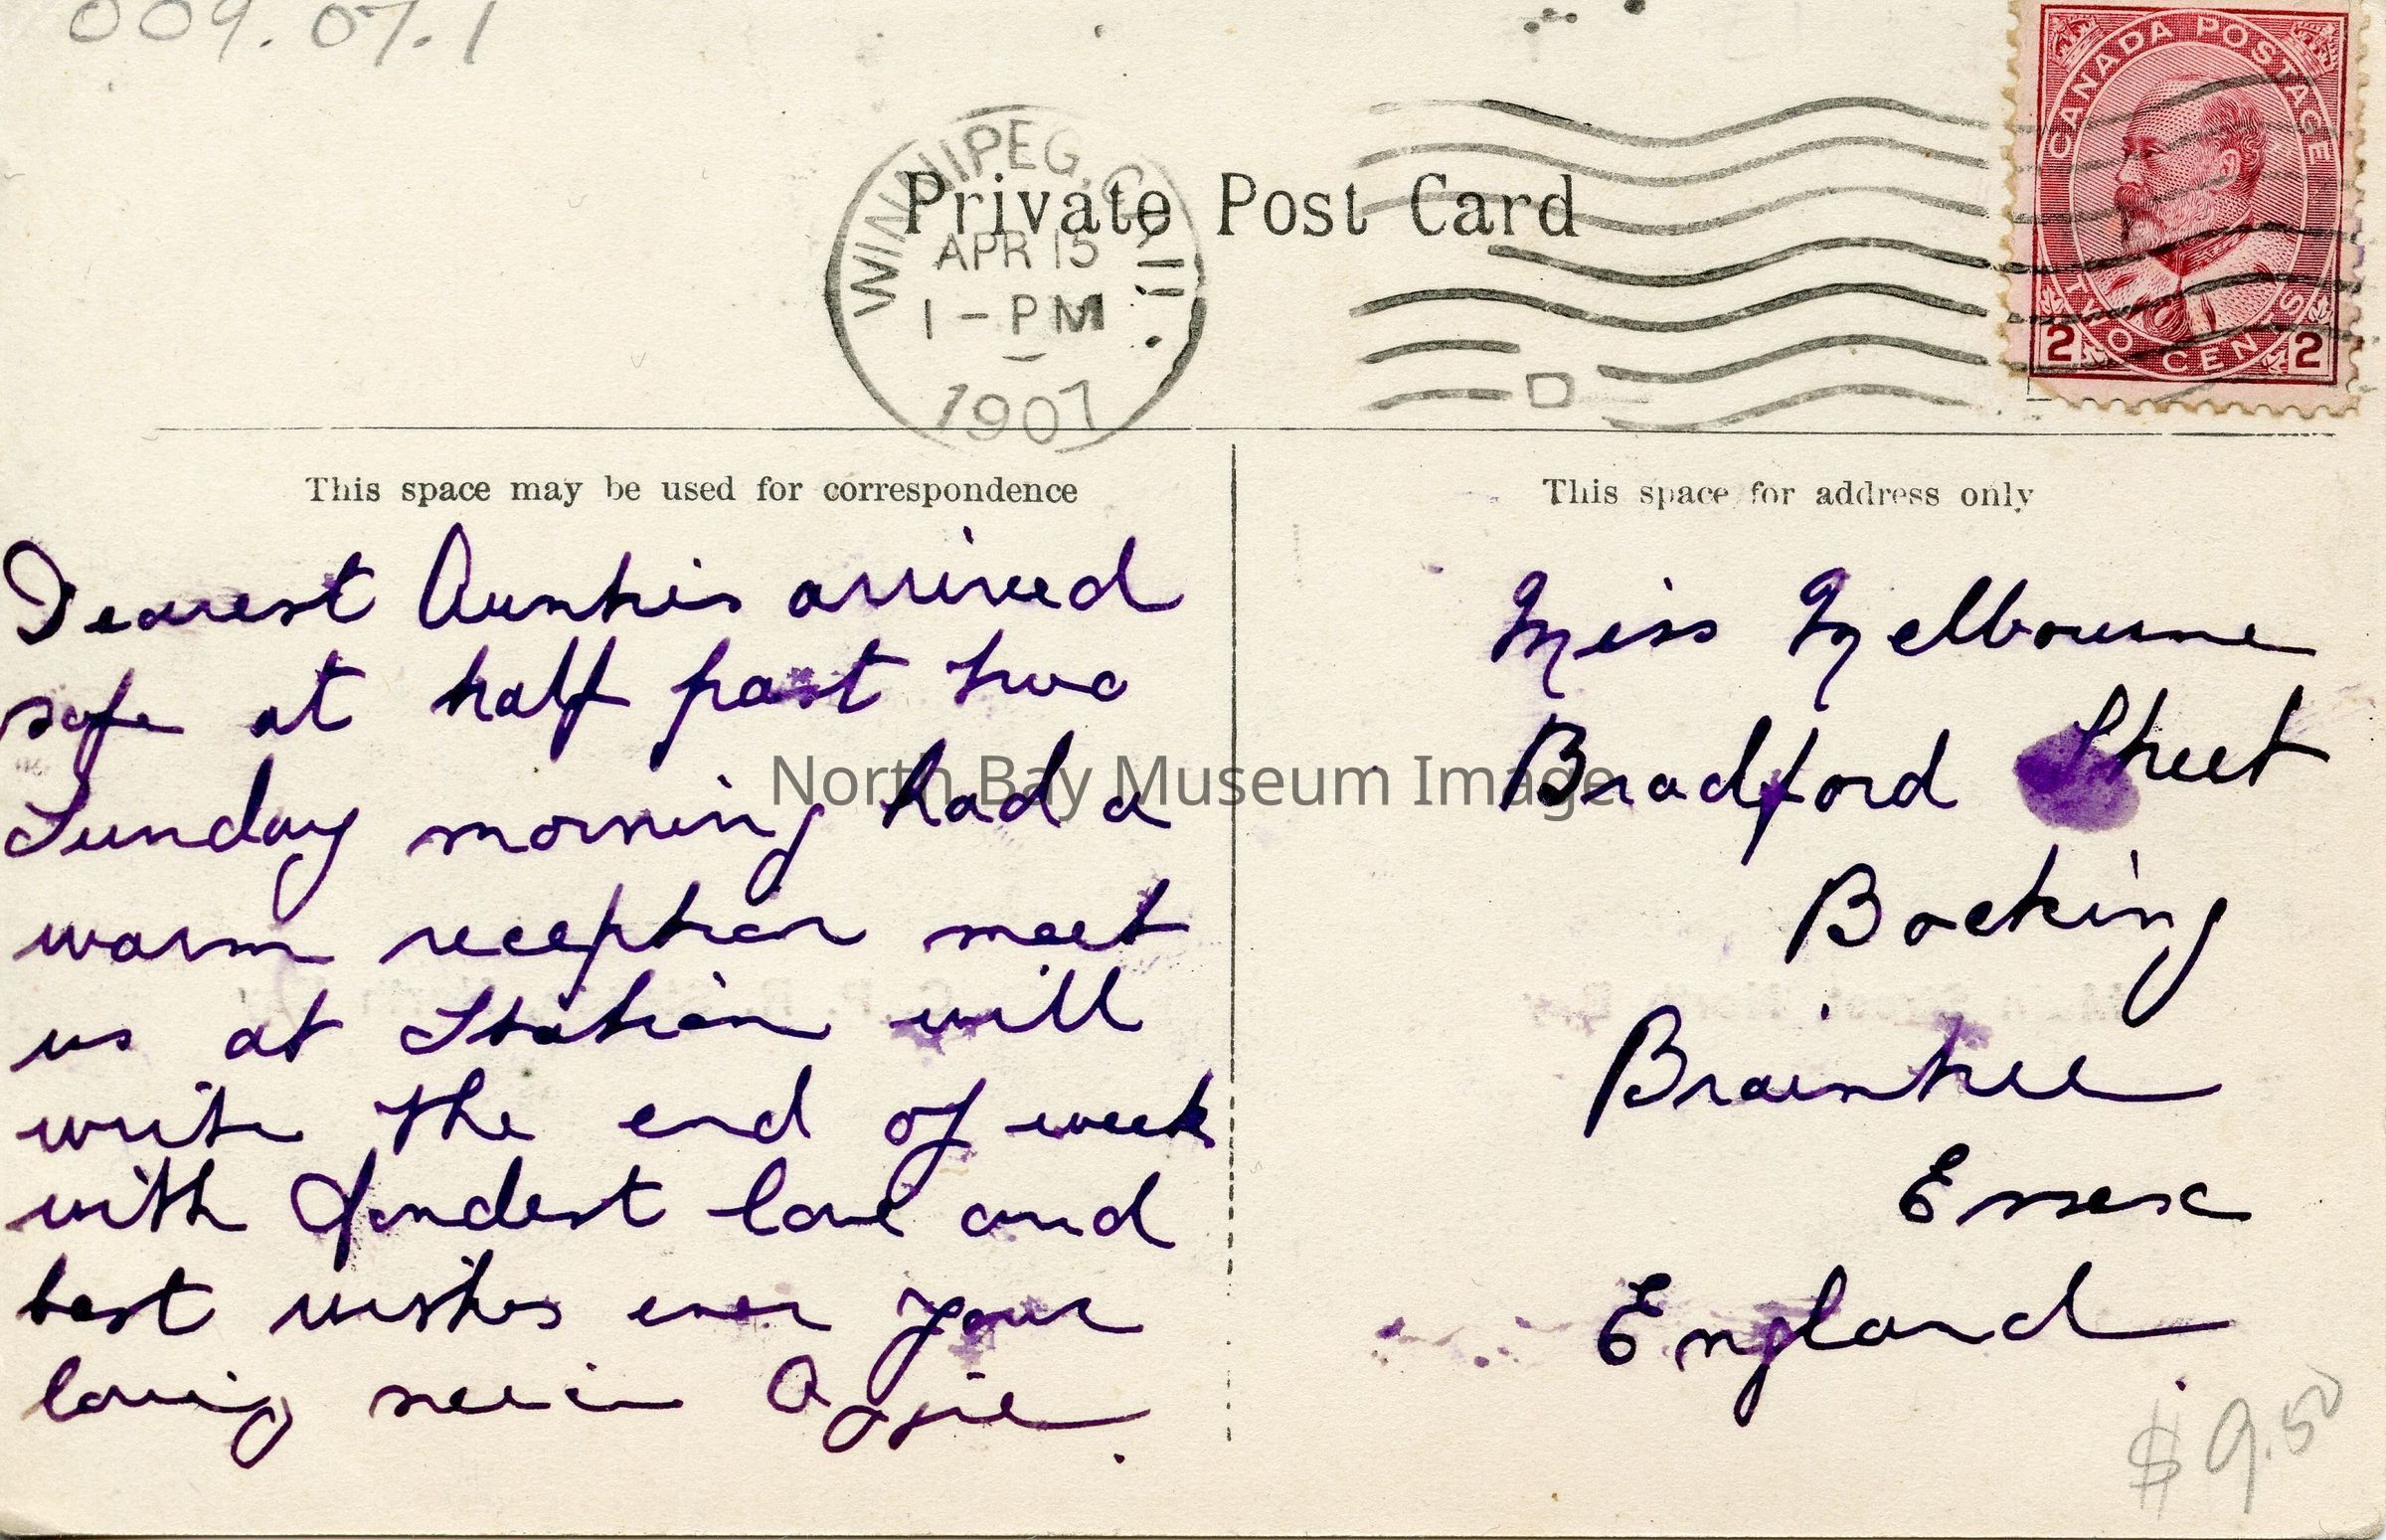 009.07.1
CANADA POSTAGE
TWO CENTS
2 2
WINNIPEG, C
APR 15
1 - PM
1907
Private Post Card
This space may be used for correspondence
This space for address only
Dearest Aunties arrived
safe at half past two
Sunday morning had a
warm reception meet
us at Station will
write the end of week
with fondest love and
best wishes ever your
loving neice Aggie.
Miss Melbourne
Bradford Street
Bocking
Braintree
Essex
England.
$9.50
North Bay Museum Image